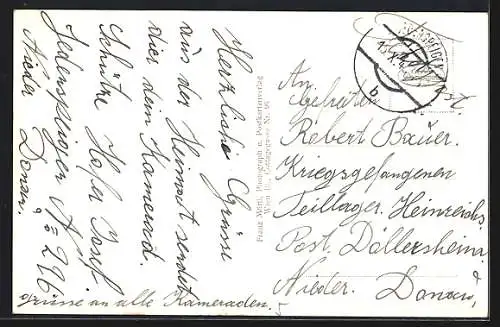 Herzliche Grüsse
aus der Heimat sendet
dier dein Kamerad.
Schütze Hofer Josef
Jedenspeigen Nº 296
Nieder Donau.
grüsse an alle Kameraden.
Franz Mörtl, Photograph u. Postkartenverlag
Wien III., Cottagegasse Nr. 96
An
Gefreiten
Robert Bauer.
Kriegsgefangenen
Teillager. Heinrichs
Post. Döllersheim.
Nieder. Donau,
b